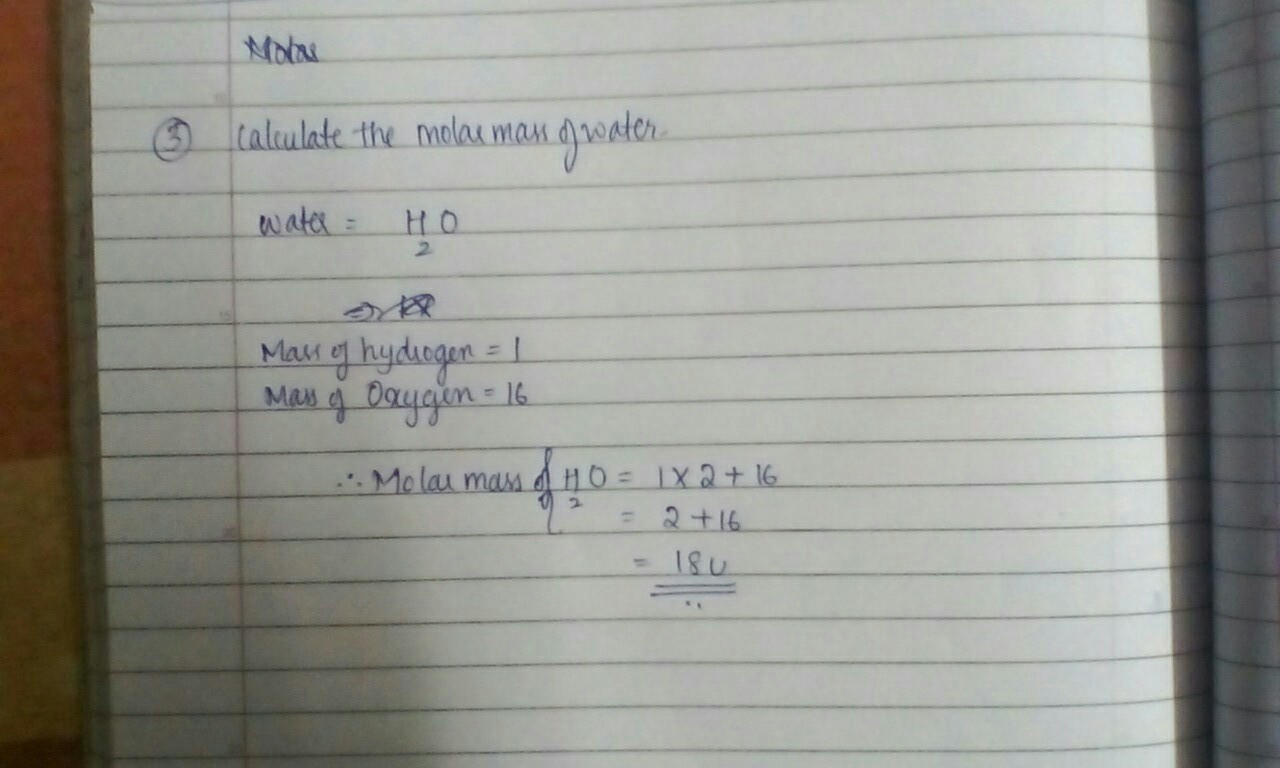 Molar
③ Calculate the molar mass of water.
Water = H₂O
Mass of hydrogen = 1
Mass of Oxygen = 16
∴ Molar mass of H₂O = 1 × 2 + 16
= 2 + 16
= 18u